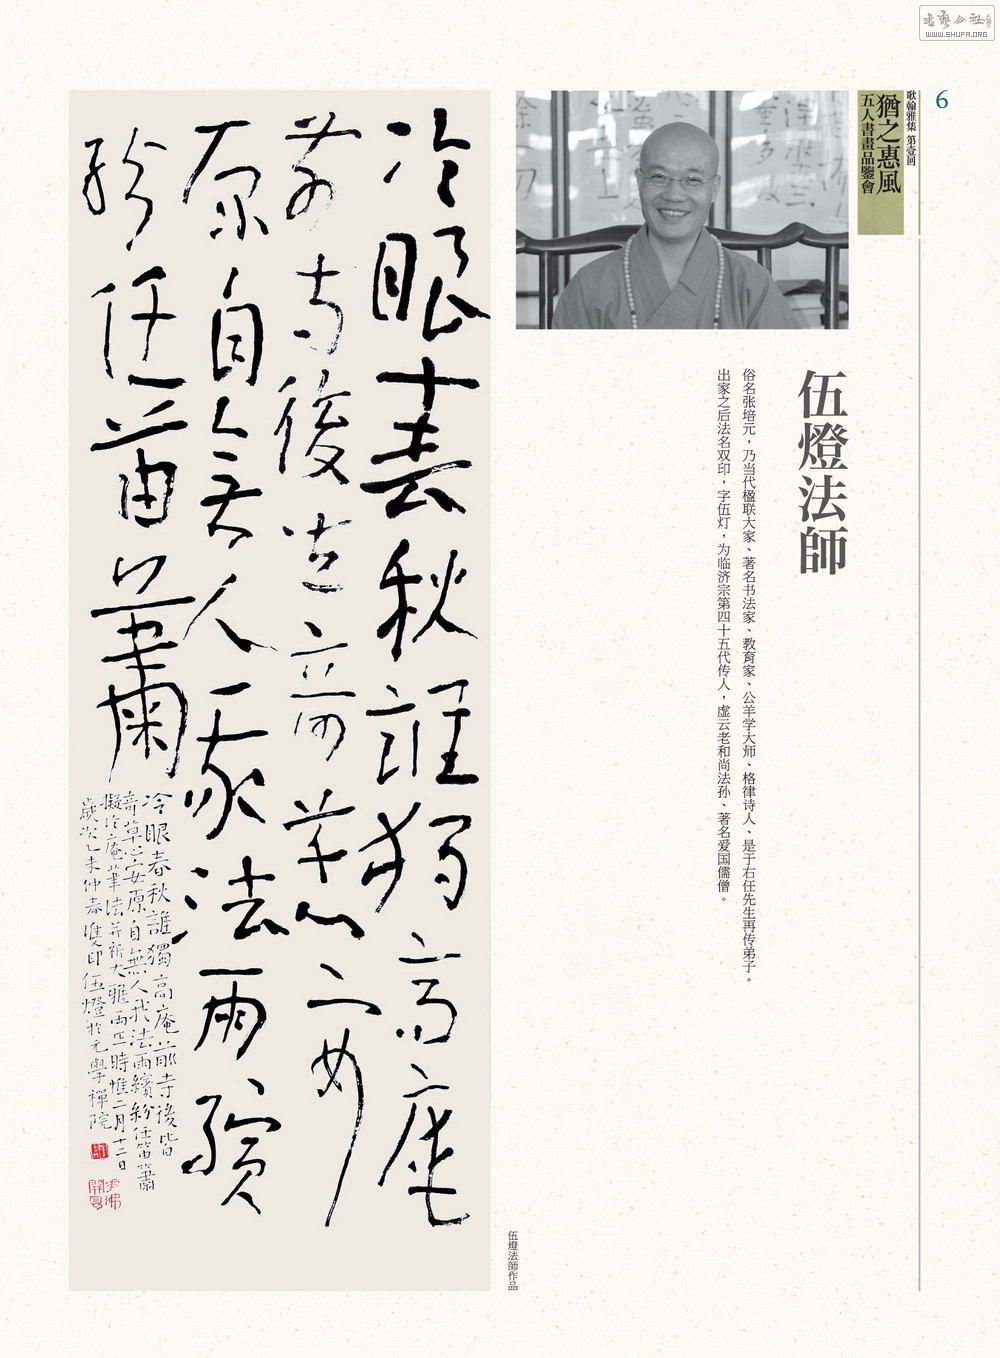 書藝公社
WWW.SHUFA.ORG
6
歌翰雅集 第壹回
猶之惠風
五人書畫品鑒會
伍燈法師
俗名张培元，乃当代楹联大家、著名书法家、教育家、公羊学大师、格律诗人、是于右任先生再传弟子。
出家之后法名双印，字伍灯，为临济宗第四十五代传人，虚云老和尚法孙、著名爱国儒僧。
伍燈法師作品
冷眼春秋誰獨高庵
前寺後皆奇草安
原自無人我法雨繽
紛任笛簫
冷眼春秋誰獨高庵前寺後皆
奇草安原自無人我法雨繽紛任笛簫
擬冷庵筆法并祈大雅兩正時惟二月十二日
歲次乙未仲春雙印伍燈於元學禪院